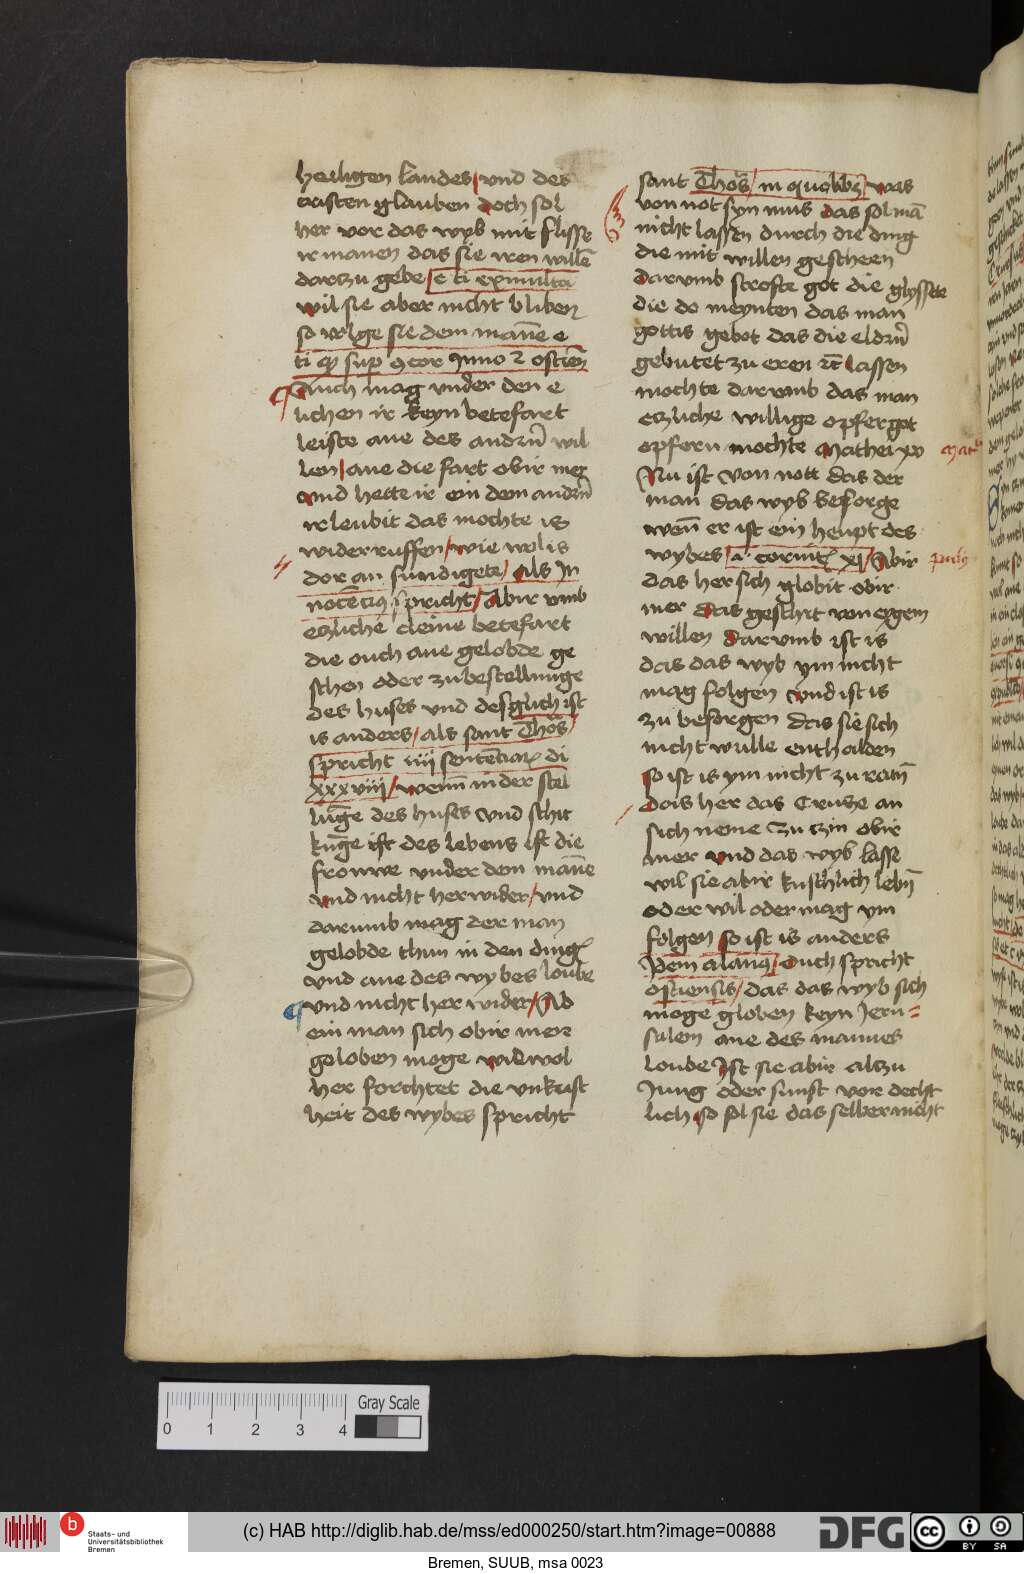 heiligen landes / vnd des
cristen glauben doch sol
her vor das wyb mit flisse
ir manen das sie iren willē
darzu gebe / e ti ex multa
wil sie aber nicht bliben
so volge sie dem manne e
Auch mag vnder den e
lichen ir keyn betefart
leiste ane des andern wil
len / ane die fart obir mer
vnd hette ir ein dem andern
irleubit das mochte is
widerruffen / wie wol is
dor an sundigete / Als In
nocecius spricht / Abir vmb
etzliche cleine betefart
die ouch ane gelobde ge
schen oder zubestellunge
des huses vnd desglich ist
is anders / als sant Thōs /
spricht iiii sentēciar di
xxxviii / wenn in der stel
lūge des huses vnd schic
kūge ist des lebens ist die
frouwe vnder dem manne
vnd nicht herwider / vnd
darumb mag der man
gelobde thun in den dinge
vnd ane des wybes loube
vnd nicht her wider / Ab
ein man sich obir mere
geloben moge wiewol
her forchtet die vnkust
heit des wybes spricht
sant Thōs / in quolibz / was
von not syn mus das sol mā
nicht lassen durch die ding
die mit willen gescheen
darumb strofte got die glyssete
die do meynten das man
gottis gebot das die eldern
gebutet zu eren rc lassen
mochte darumb das man
etzliche willige opfer got
opfern mochte Mathei xv
Nu ist von nott das der
man das wyb besorge
wenn er ist ein heupt des
wybes / xi / Abir
das her sich globit obir
mer das geschit von eygem
willen darumb ist is
das das wyb ym nicht
mag folgen vnd ist is
zu besorgen das sie sich
nicht wulle enthalden
so ist is ym nicht zu ratn
das her das Crutze an
sich neme zu tzin obir
mer vnd das wyb lasse
wil sie abir kuschlich lebn
oder wil oder mag ym
folgen so ist is anders
Item alanus / Ouch spricht
ostiensis / das das wyb sich
moge globen keyn Jeru=
salem ane des mannes
loube Ist sie abir alzu
Jung oder sunst vordecht
lich so sol sie das selber nicht
0 1 2 3 4
Gray Scale
b
Staats- und
Universitätsbibliothek
Bremen
(c) HAB http://diglib.hab.de/mss/ed000250/start.htm?image=00888
DFG
cc
BY SA
Bremen, SUUB, msa 0023